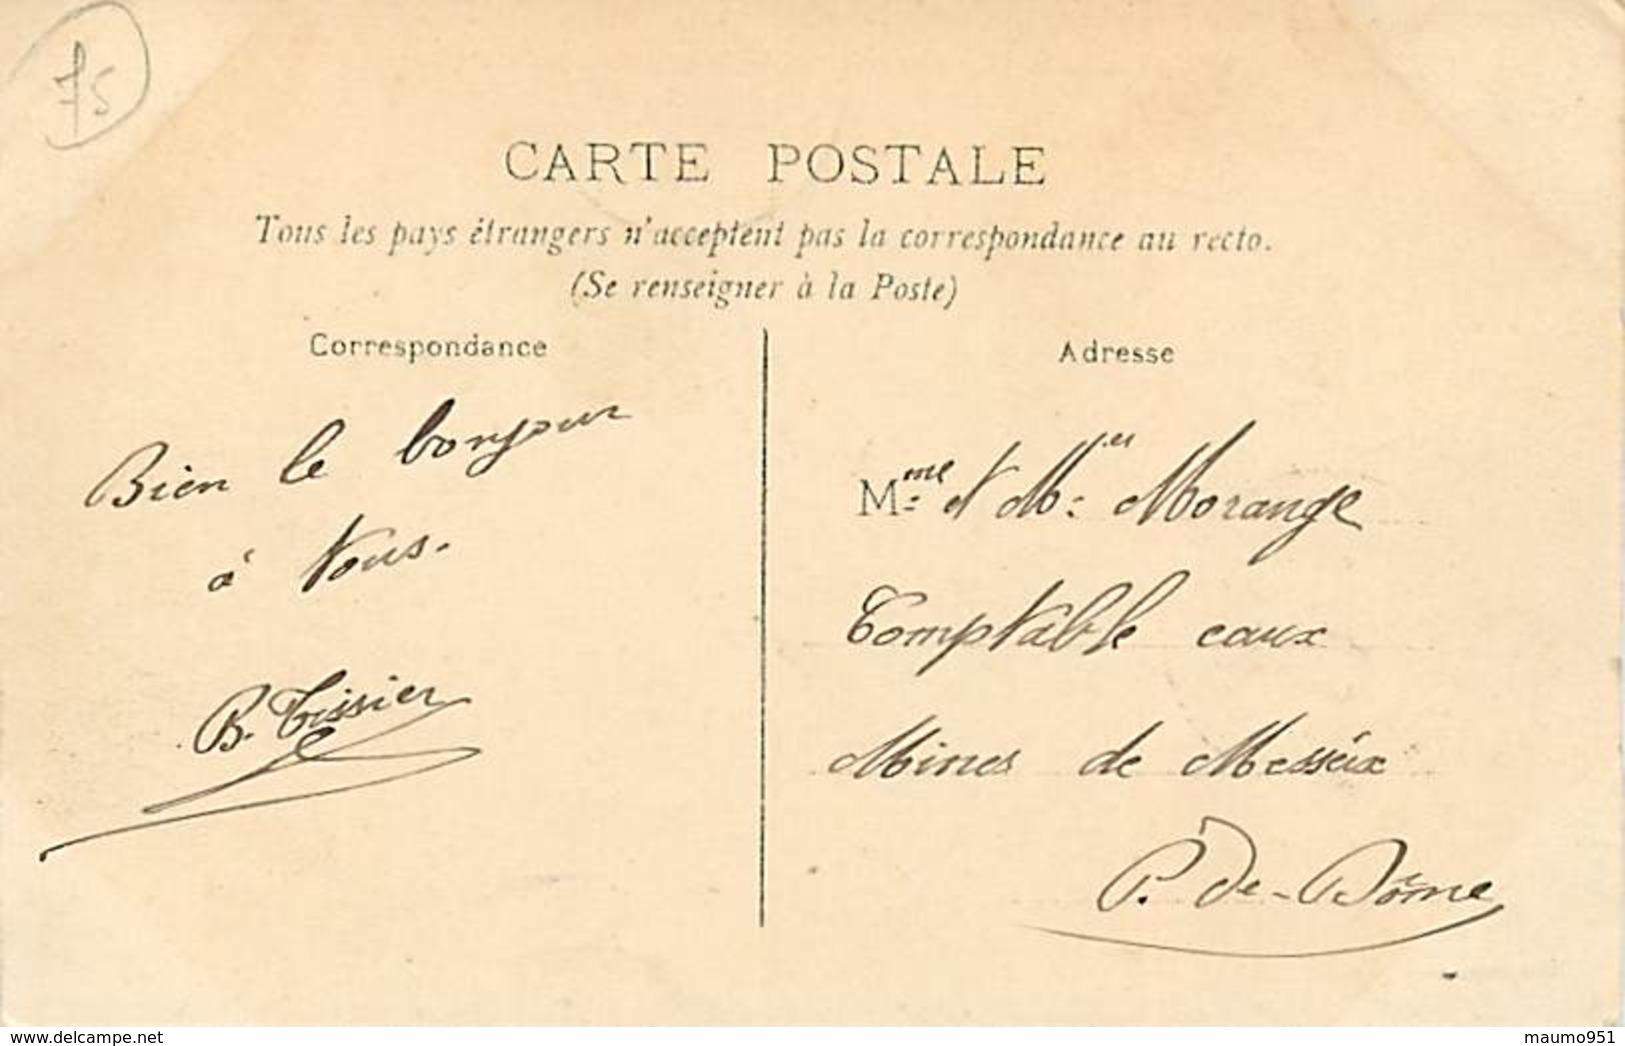 75
CARTE POSTALE
Tous les pays étrangers n'acceptent pas la correspondance au recto.
(Se renseigner à la Poste)
Correspondance
Bien le bonjour
à Vous.
B. Tissier
Adresse
Mme et Mr Morange
Comptable aux
Mines de Messeix
P. de-Dôme
delcampe.net
maumo951